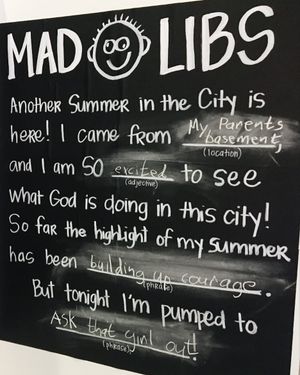 MAD LIBS
Another Summer in the City is
here! I came from My Parents
basement,
(location)
and I am SO excited to see
(adjective)
what God is doing in this city!
So far the highlight of my summer
has been building up courage.
(phrase)
But tonight I'm pumped to
Ask that girl out!
(phrase)